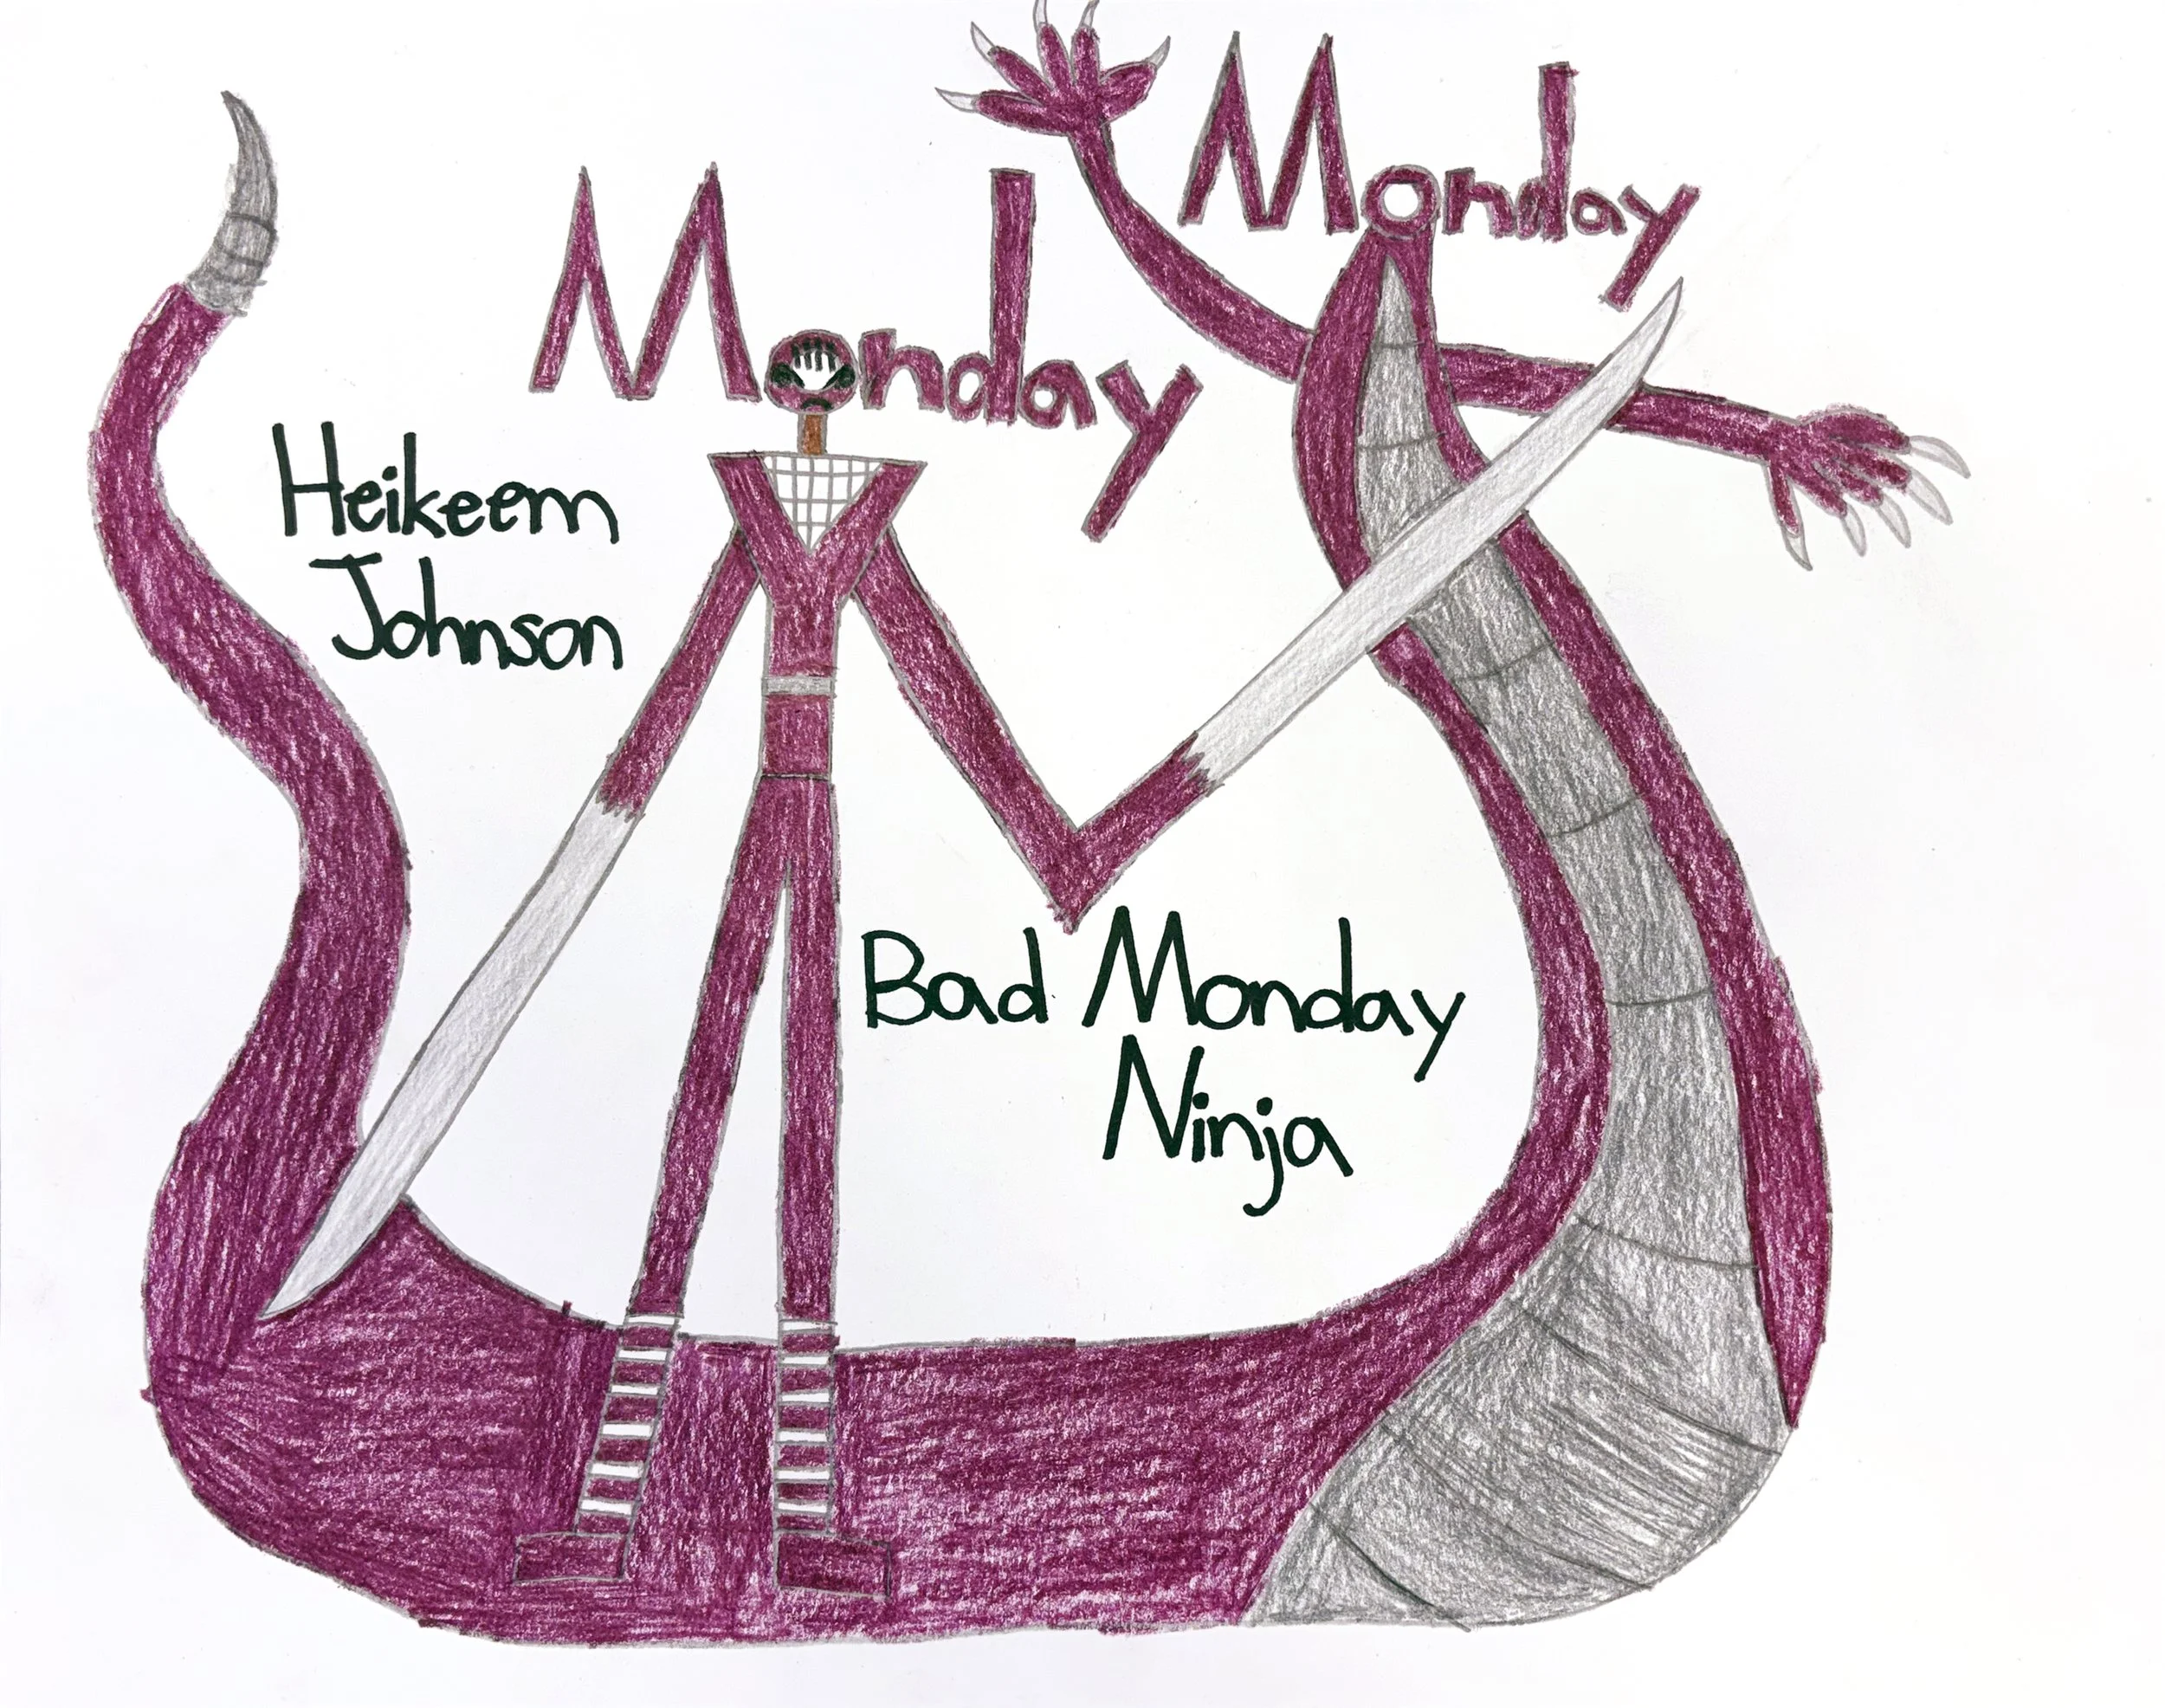 Monday
Monday
Heikeem
Johnson
Bad Monday
Ninja